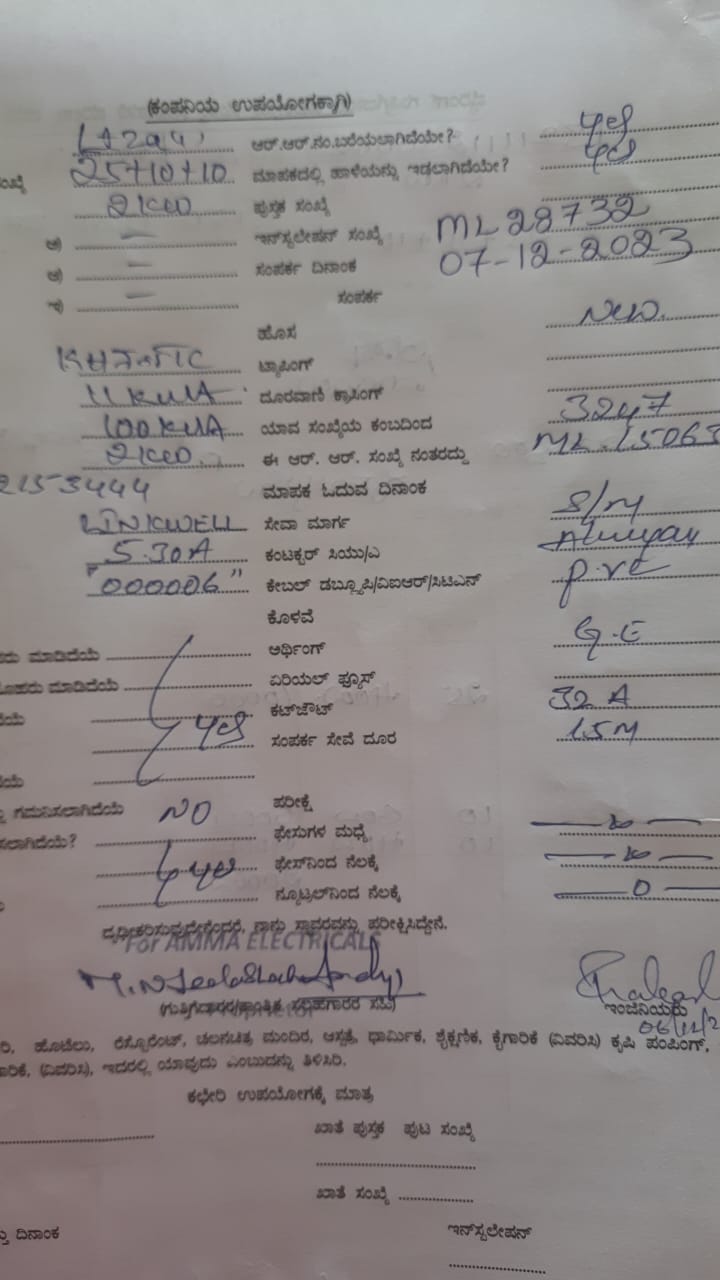 (ಕಂಪನಿಯ ಉಪಯೋಗಕ್ಕಾಗಿ)
ಆರ್.ಆರ್.ನಂ.ಬರೆಯಲಾಗಿದೆಯೇ? yes
ಸಂಖ್ಯೆ 25+10+10 ಮಾಪಕದಲ್ಲಿ ಹಾಳೆಯನ್ನು ಇಡಲಾಗಿದೆಯೇ? yes
2KW ಪುಸ್ತಕ ಸಂಖ್ಯೆ
ಅ) — ಇನ್‌ಸ್ಟಲೇಷನ್ ಸಂಖ್ಯೆ ML28732
ಆ) — ಸಂಪರ್ಕ ದಿನಾಂಕ 07-12-2023
ಇ) — ಸಂಪರ್ಕ
ಹೊಸ New.
ಟ್ಯಾಪಿಂಗ್
11KVA ದೂರವಾಣಿ ಕ್ರಾಸಿಂಗ್
100KVA ಯಾವ ಸಂಖ್ಯೆಯ ಕಂಬದಿಂದ 3247
2KW ಈ ಆರ್. ಆರ್. ಸಂಖ್ಯೆ ನಂತರದ್ದು ML.15063
2153444 ಮಾಪಕ ಓದುವ ದಿನಾಂಕ
LINKWELL ಸೇವಾ ಮಾರ್ಗ S/M
5.30A ಕಂಟಕ್ಟರ್ ಸಿಯು/ಎ
"000006" ಕೇಬಲ್ ಡಬ್ಲ್ಯೂಪಿ/ವಿಐಆರ್/ಸಿಟಿಎನ್ p.vc
ಕೊಳವೆ
ಮಾಡಿದೆಯೆ ಅರ್ಥಿಂಗ್ G.E
ಮಾಡಿದೆಯೆ ಏರಿಯಲ್ ಫ್ಯೂಸ್
ಕಟ್‌ಔಟ್ 32 A
yes ಸಂಪರ್ಕ ಸೇವೆ ದೂರ 15M
ಗಮನಿಸಲಾಗಿದೆಯೆ NO ಪರೀಕ್ಷೆ
ಫೇಸುಗಳ ಮಧ್ಯೆ
yes ಫೇಸ್‌ನಿಂದ ನೆಲಕ್ಕೆ
ನ್ಯೂಟ್ರಲ್‌ನಿಂದ ನೆಲಕ್ಕೆ — 0 —
ದೃಢೀಕರಿಸುವುದೇನೆಂದರೆ, ನಾನು ಸ್ಥಾವರವನ್ನು ಪರೀಕ್ಷಿಸಿದ್ದೇನೆ.
For AMMA ELECTRICALS
ಇಂಜಿನಿಯರು
ಹೊಟೆಲು, ರೆಸ್ಟೊರೆಂಟ್, ಚಲನಚಿತ್ರ ಮಂದಿರ, ಆಸ್ಪತ್ರೆ, ಧಾರ್ಮಿಕ, ಶೈಕ್ಷಣಿಕ, ಕೈಗಾರಿಕೆ (ವಿವರಿಸಿ) ಕೃಷಿ ಪಂಪಿಂಗ್,
(ವಿವರಿಸಿ), ಇದರಲ್ಲಿ ಯಾವುದು ಎಂಬುದನ್ನು ತಿಳಿಸಿರಿ.
ಕಛೇರಿ ಉಪಯೋಗಕ್ಕೆ ಮಾತ್ರ
ಖಾತೆ ಪುಸ್ತಕ ಪುಟ ಸಂಖ್ಯೆ
ಖಾತೆ ಸಂಖ್ಯೆ
ದಿನಾಂಕ ಇನ್‌ಸ್ಟಲೇಷನ್